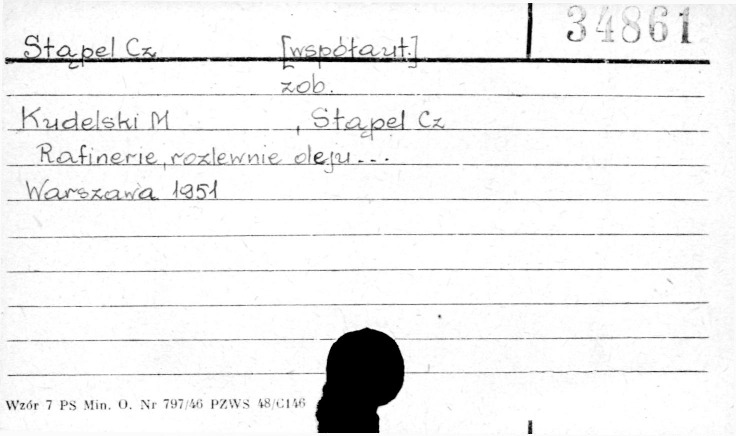 34861
Stąpel Cz [współaut.]
zob.
Kudelski M , Stąpel Cz
Rafinerie, rozlewnie oleju...
Warszawa 1951
Wzór 7 PS Min. O. Nr 797/46 PZWS 48/C146